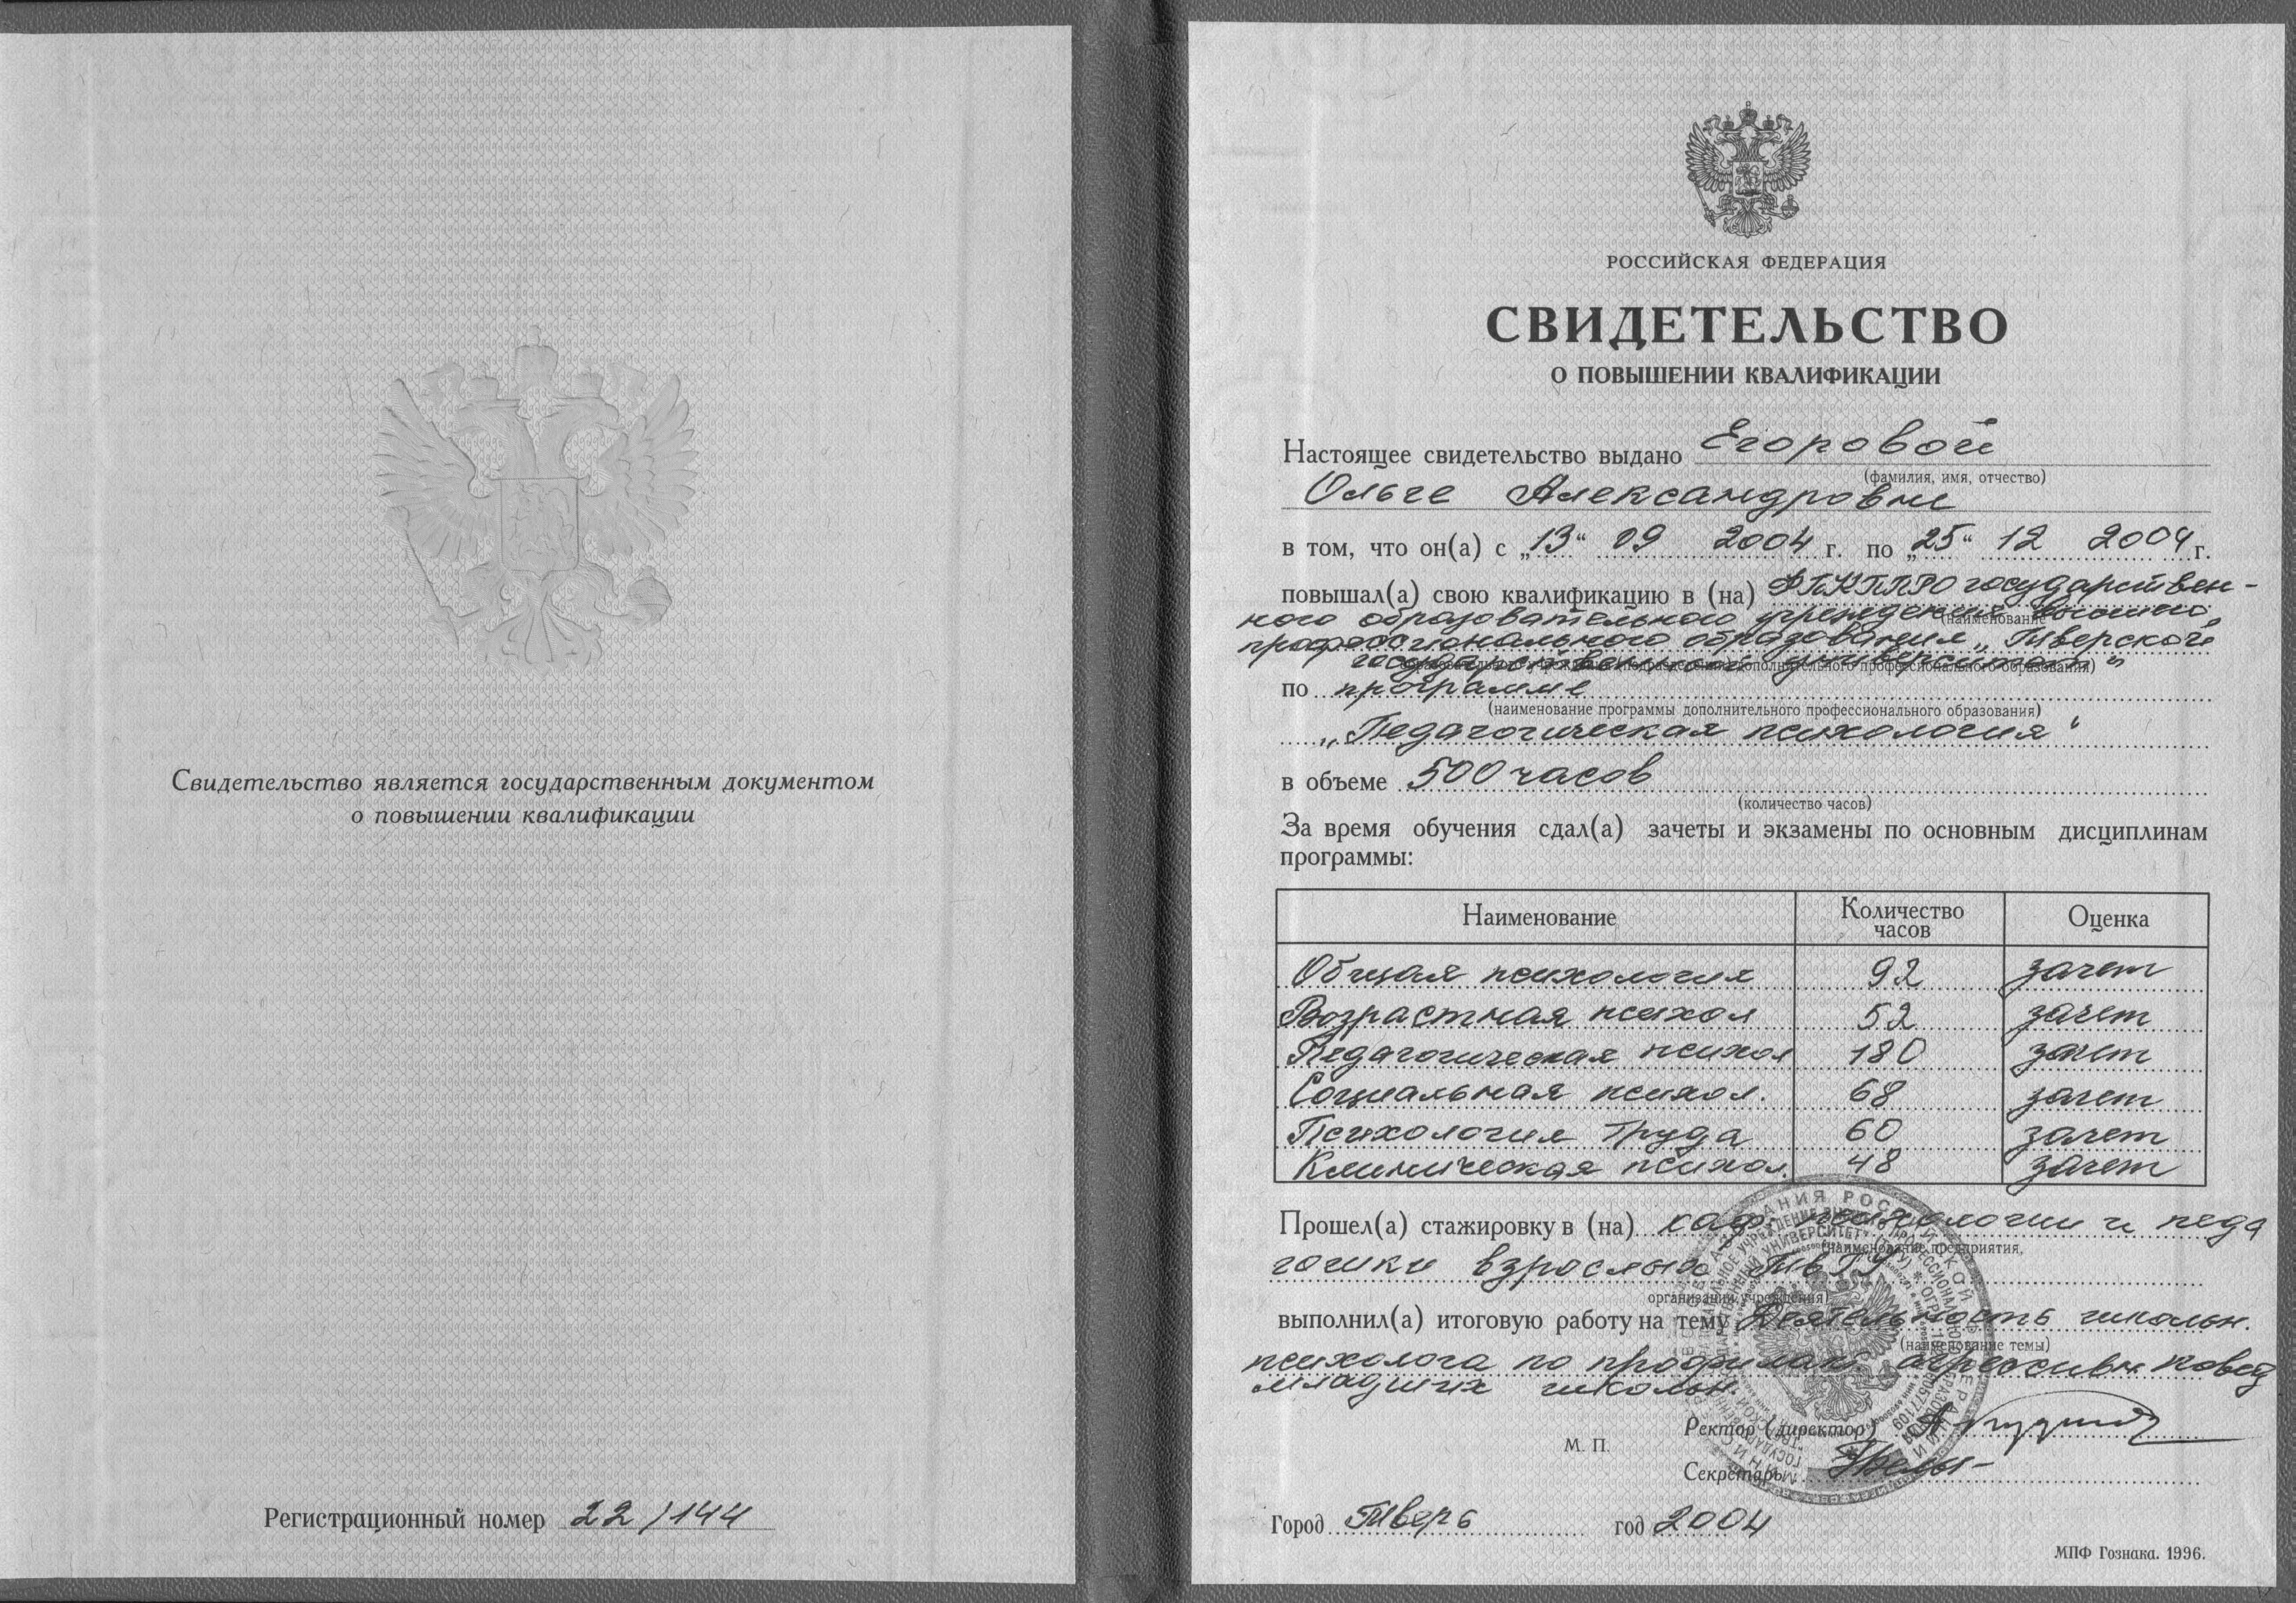 Свидетельство является государственным документом
о повышении квалификации
Регистрационный номер 22/144
РОССИЙСКАЯ ФЕДЕРАЦИЯ
СВИДЕТЕЛЬСТВО
О ПОВЫШЕНИИ КВАЛИФИКАЦИИ
Настоящее свидетельство выдано Егоровой
(фамилия, имя, отчество)
Ольге Александровне
в том, что он(а) с „13“ 09 2004 г. по „25“ 12 2004 г.
повышал(а) свою квалификацию в (на) ФПКППРО государствен-
ного образовательного учреждения высшего
(наименование
профессионального образования „Тверской
государственный университет“
дополнительного профессионального образования)
по программе
(наименование программы дополнительного профессионального образования)
„Педагогическая психология“
в объеме 500 часов
(количество часов)
За время обучения сдал(а) зачеты и экзамены по основным дисциплинам
программы:
Наименование Количество часов Оценка
Общая психология 92 зачет
Возрастная психол 52 зачет
Педагогическая психол 180 зачет
Социальная психол. 68 зачет
Психология труда 60 зачет
Клиническая психол. 48 зачет
Прошел(а) стажировку в (на) каф. психологии и педа
(наименование предприятия,
гогики взрослых ТвГУ
организации, учреждения)
выполнил(а) итоговую работу на тему Деятельность школьн.
(наименование темы)
психолога по профилакт. агрессивн повед
младших школьн.
Ректор (директор)
М. П.
Секретарь
Город Тверь год 2004
МПФ Гознака. 1996.